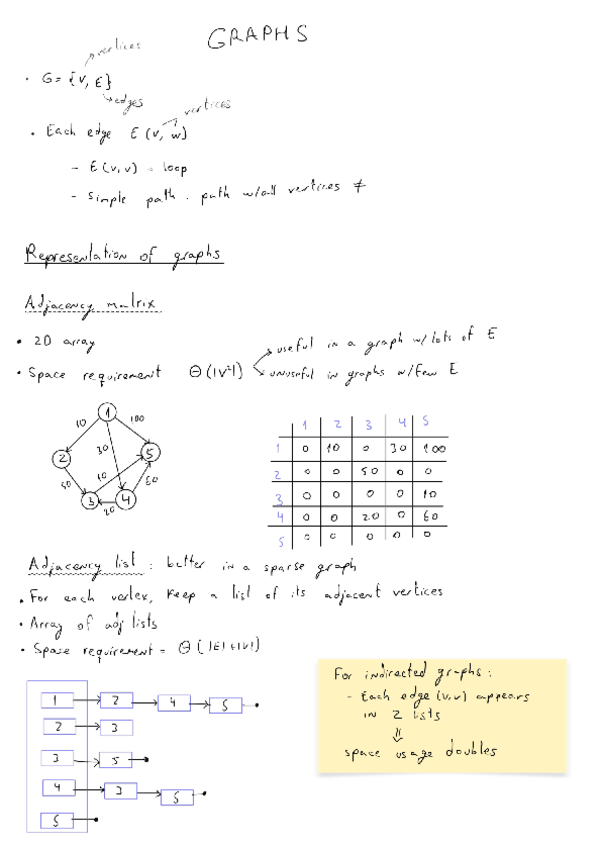 GRAPHS
vertices
• G = {V, E}
edges
vertices
• Each edge E (v, w)
- E (v,v) = loop
- Simple path . path w/all vertices ≠
Representation of graphs
Adjacency matrix
• 2D array
useful in a graph w/lots of E
• Space requirement Θ(|V²|)
unuseful in graphs w/Few E
1
10 100
2 30 5
50 10 60
3 20 4
1 2 3 4 5
1 0 10 0 30 100
2 0 0 50 0 0
3 0 0 0 0 10
4 0 0 20 0 60
5 0 0 0 0 0
Adjacency list : better in a sparse graph
• For each vertex, Keep a list of its adjacent vertices
• Array of adj lists
• Space requirement = Θ(|E|+|V|)
1 2 4 5
2 3
3 5
4 3 5
5
For indirected graphs :
- Each edge (v,v) appears
in 2 lists
⇓
space usage doubles